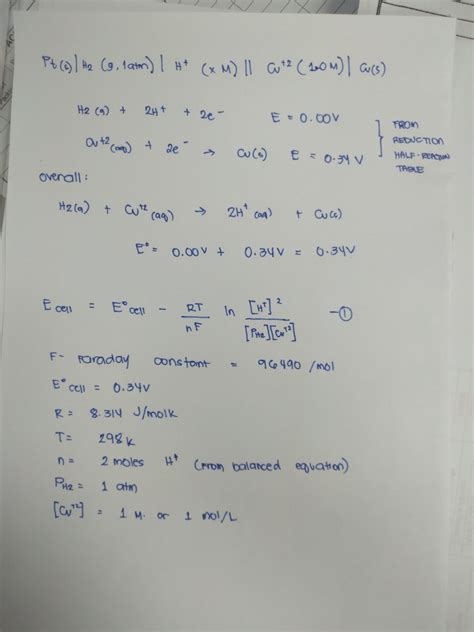 Pt(s) | H2 (g, 1atm) | H+ (x M) || Cu+2 (1.0M) | Cu(s)
H2(g) + 2H+ + 2e- E = 0.00V
Cu+2(aq) + 2e- → Cu(s) E = 0.34V
FROM
REDUCTION
HALF-REACTION
TABLE
overall:
H2(g) + Cu+2(aq) → 2H+(aq) + Cu(s)
E° = 0.00V + 0.34V = 0.34V
Ecell = E°cell - RT/nF ln [H+]^2/[PH2][Cu+2] -①
F- Faraday constant = 96490 /mol
E°cell = 0.34V
R = 8.314 J/molK
T = 298K
n = 2 moles H+ (from balanced equation)
PH2 = 1 atm
[Cu+2] = 1 M. or 1 mol/L